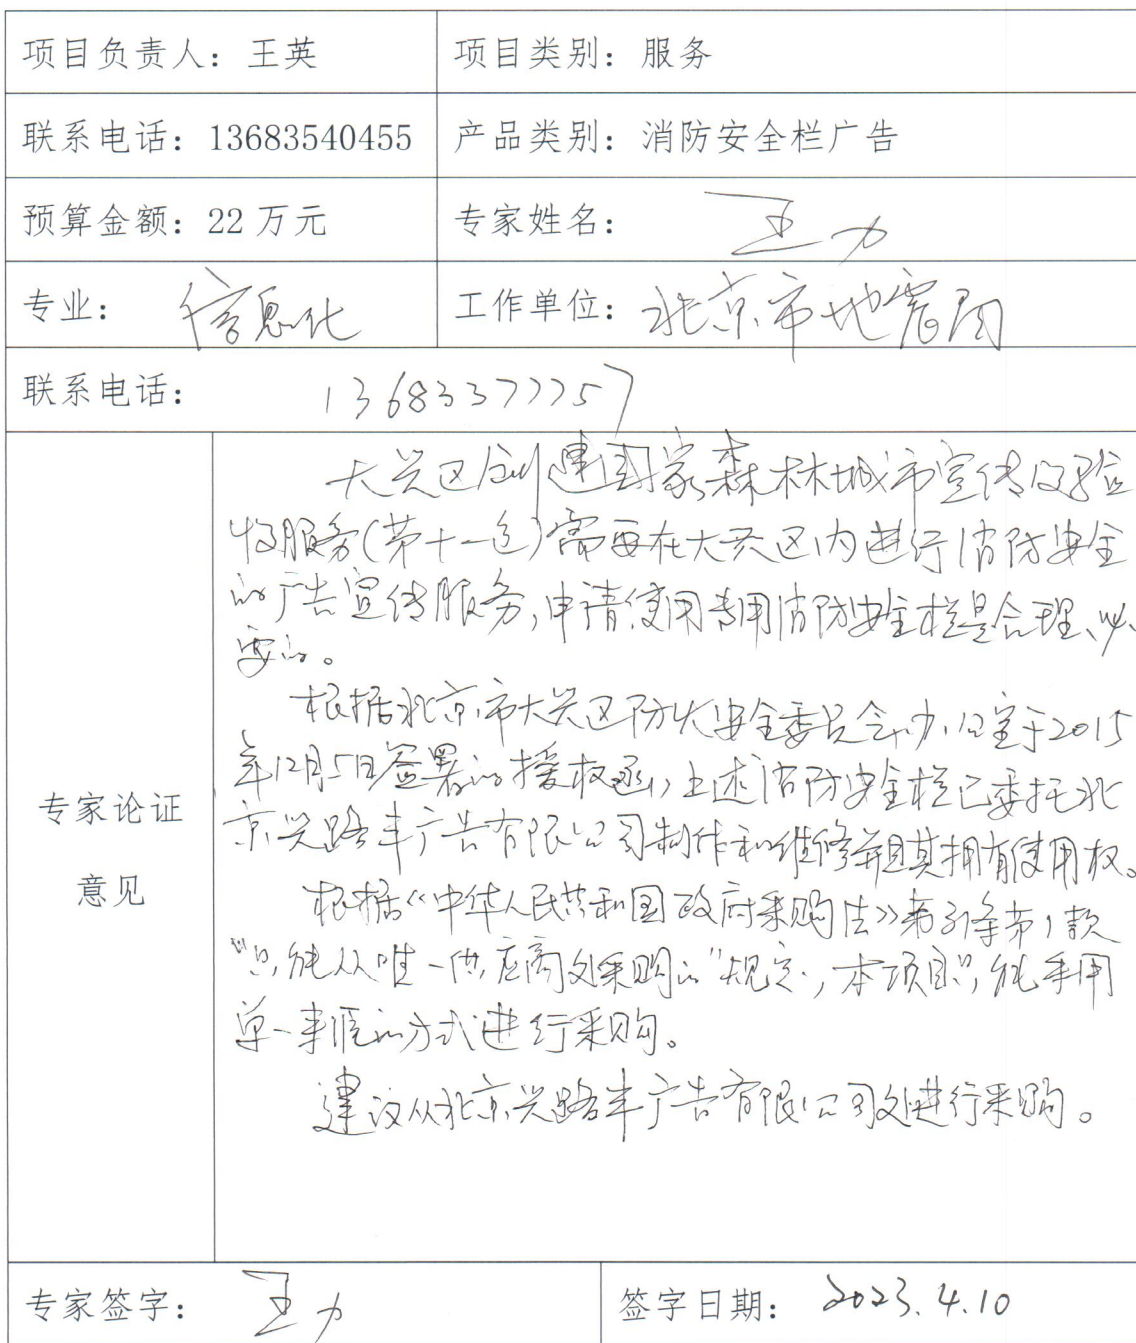 项目负责人：王英 项目类别：服务
联系电话：13683540455 产品类别：消防安全栏广告
预算金额：22 万元 专家姓名：王力
专业：信息化 工作单位：北京市地震局
联系电话：13683377757
专家论证
意见
大兴区创建国家森林城市宣传及验
收服务(第十一包)需要在大兴区内进行消防安全
的广告宣传服务,申请使用专用消防安全栏是合理、必
要的。
根据北京市大兴区防火安全委员会办公室于2015
年12月5日签署的授权函,上述消防安全栏已委托北
京兴路丰广告有限公司制作和维修并且其拥有使用权。
根据《中华人民共和国政府采购法》第31条第1款
"只能从唯一供应商处采购的"规定,本项目只能采用
单一来源的方式进行采购。
建议从北京兴路丰广告有限公司处进行采购。
专家签字：王力 签字日期：2023.4.10